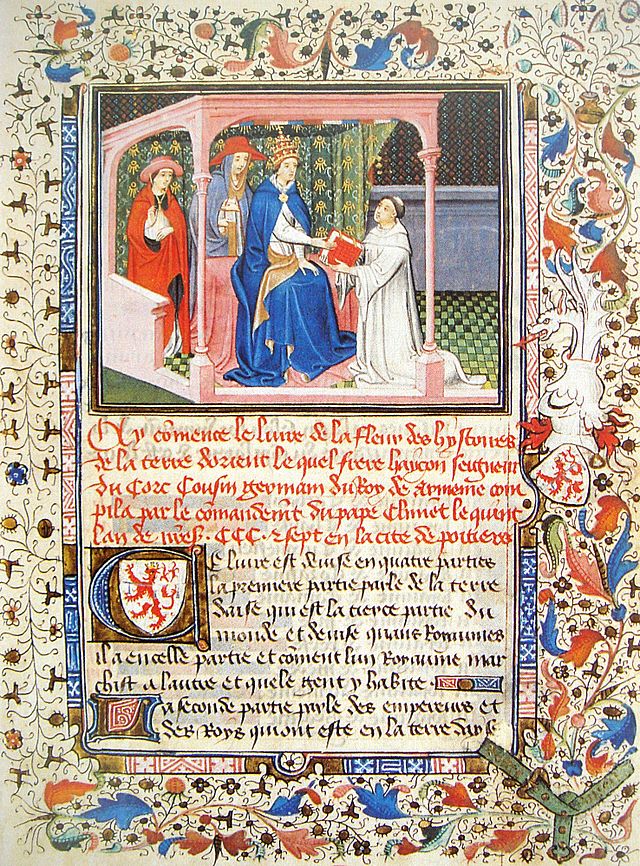 Cy cōmence le livre de la fleur des hystoires
de la terre dorient le quel frere haycon seigneur
du Corc Cousin germain du Roy de armenie com
pila par le comandemēt du pape Climēt le quint
lan de nr̄es · CCC · et sept en la cite de poitiers
Ce livre est devise en quatre parties
la premiere partie parle de la terre
dasie qui est la tierce partie du
monde et devise quans Royaumes
il a en celle partie et cōment lun Royaume mar
chist a lautre et quele gent y habite
La seconde partie parle des empereurs et
des Roys qui ont este en la terre dasie